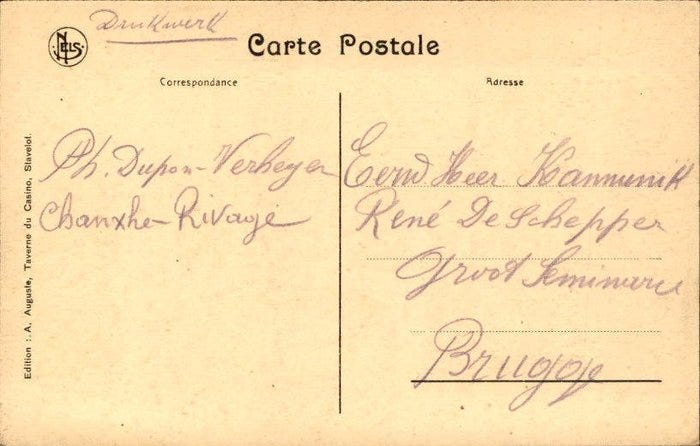 Drukwerk
NELS
Carte Postale
Correspondance
Adresse
Ph. Dupon-Verheyen
Chanxhe-Rivage
Eerw Heer Kannunik
René De Schepper
Groot Seminarie
Brugge
Edition : A. Auguste, Taverne du Casino, Stavelot.